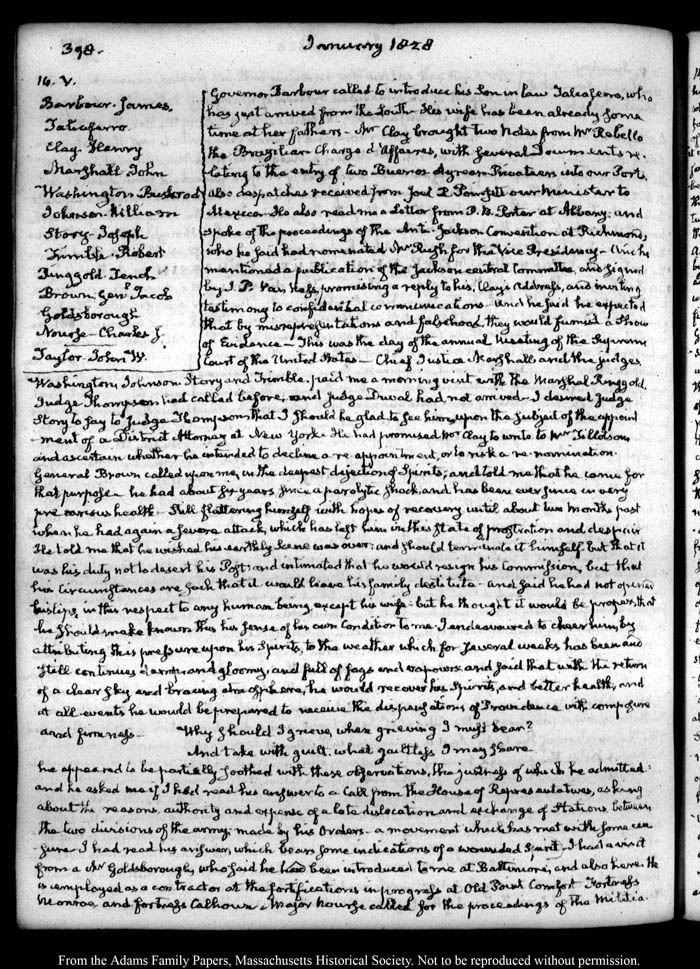 398.
January 1828
14. V.
Barbour. James.
Taliaferro
Clay. Henry
Marshall John
Washington Bushrod
Johnson. William
Story. Joseph
Trimble. Robert
Ringgold. Tench
Brown, Genl. Jacob
Goldsborough
Nourse - Charles J.
Taylor. John W.
Governor Barbour called to introduce his Son in law Taliaferro, who
has just arrived from the South. His wife has been already some
time at her fathers. Mr Clay brought two Notes from Mr Rebello
the Brazilian Chargé d'Affaires, with several Documents re-
lating to the entry of two Buenos Ayrean Privateers into our Ports.
also despatches received from Joel R. Poinsett our Minister to
Mexico. He also read me a Letter from P. B. Porter at Albany; and
spoke of the proceedings of the Anti-Jackson Convention at Richmond,
who he said had nominated Mr Rush for the Vice Presidency. He
mentioned a publication of the Jackson central Committee, and signed
by J. P. Van Ness, promising a reply to his, Clay's Address, and inviting
testimony to confidential communications. And he said he expected
that by misrepresentations and falsehood, they would furnish a Show
of Evidence - This was the day of the annual meeting of the Supreme
Court of the United States - Chief Justice Marshall and the judges
Washington, Johnson, Story and Trimble, paid me a morning visit with the Marshal Ringgold.
Judge Thompson had called before, and Judge Duval had not arrived. I desired Judge
Story to say to Judge Thompson that I should be glad to see him, upon the subject of the appoint
-ment of a District Attorney at New York. He had promised Mr Clay to write to Mr Tillotson
and ascertain whether he intended to decline a re-appointment, or to risk a re-nomination.
General Brown called upon me, in the deepest dejection of Spirits; and told me that he came for
that purpose. he had about six years since a paralytic shock, and has been ever since in very
precarious health - Still flattering himself with hopes of recovery until about two months past
when he had again a severe attack, which has left him in this state of prostration and despair
He told me that he wished his earthly scene was over; and should terminate it himself, but that it
was his duty not to desert his Post; and intimated that he would resign his Commission, but that
his circumstances are such that it would leave his family destitute - and said he had not opened
his lips, in this respect to any human being, except his wife. but he thought it would be proper, that
he should make known this his sense of his own Condition to me. I endeavoured to cheer him, by
attributing this pressure upon his Spirits, to the weather which for several weeks has been and
still continues damp and gloomy, and full of fogs and vapours: and said that with the return
of a clear sky and bracing atmosphere, he would recover his Spirits, and better health, and
at all events he would be prepared to receive the dispensations of Providence with composure
and firmness - Why should I grieve, when grieving I must bear?
And take with guilt, what guiltless I may share.
he appeared to be partially soothed with these observations, the justness of which he admitted;
and he asked me if I had read his answer to a Call from the House of Representatives, asking
about the reasons, authority and expense of a late dislocation and exchange of Stations between
the two divisions of the army; made by his Orders. a movement which has met with some cen-
sure. I had read his answer, which bears some indications of a wounded Spirit. I had a visit
from a Mr Goldsborough, who said he had been introduced to me at Baltimore, and also here. He
is employed as a contractor at the fortifications in progress at Old Point Comfort Fortress
Monroe, and fortress Calhoun. Major Nourse called for the proceedings of the Militia
From the Adams Family Papers, Massachusetts Historical Society. Not to be reproduced without permission.